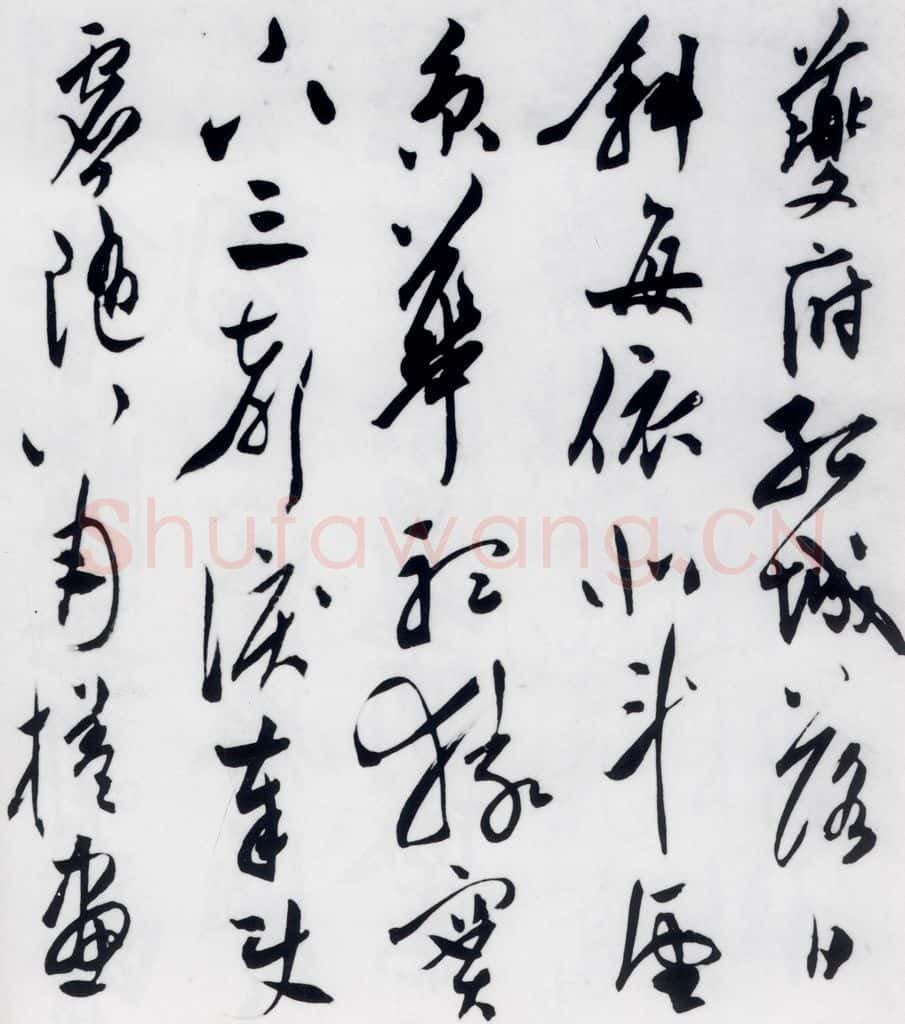 夔府孤城落日
斜每依北斗望
京華聽猿實
下三聲淚奉使
虛隨八月槎畫
Shufawang.CN